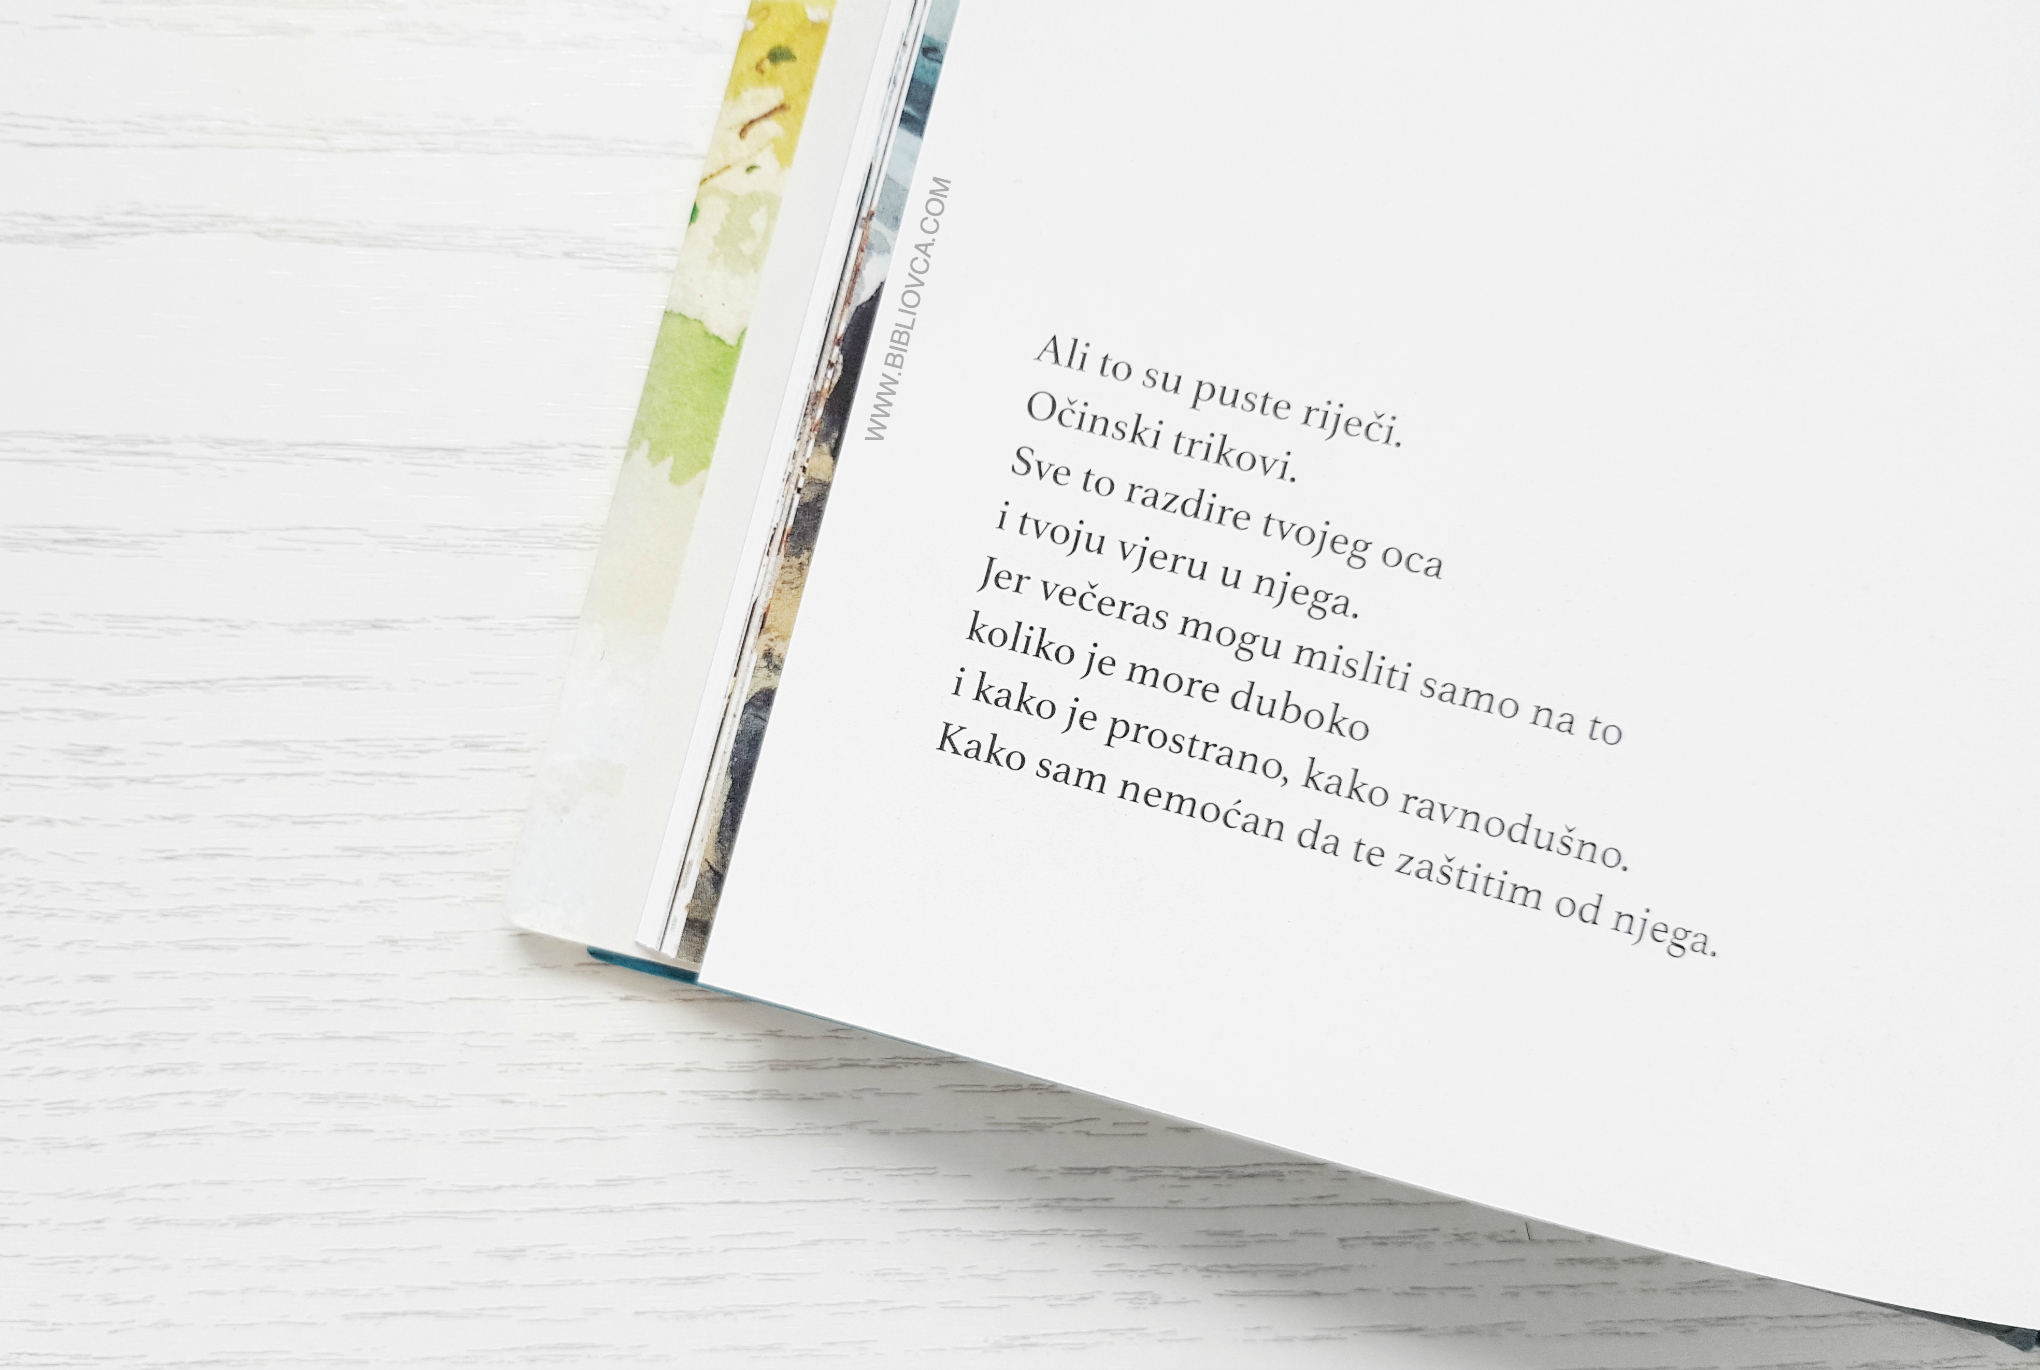 WWW.BIBLIOVCA.COM
Ali to su puste riječi.
Očinski trikovi.
Sve to razdire tvojeg oca
i tvoju vjeru u njega.
Jer večeras mogu misliti samo na to
koliko je more duboko
i kako je prostrano, kako ravnodušno.
Kako sam nemoćan da te zaštitim od njega.